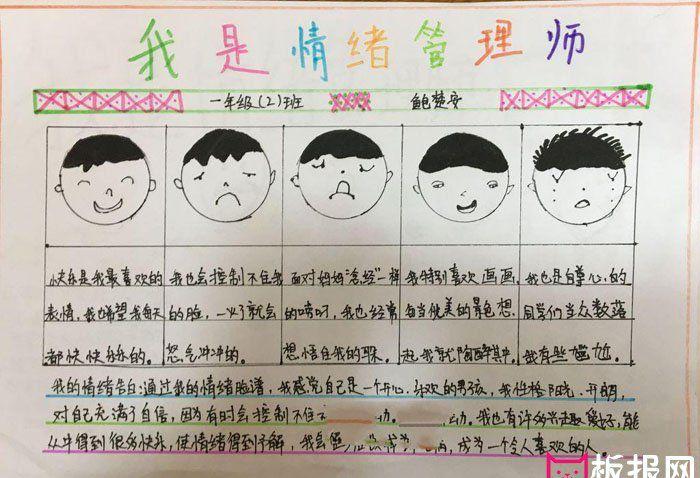 我是情绪管理师
一年级(2)班 鲍楚安
快乐是我最喜欢的
表情,我希望我每天
都快快乐乐的。
我也会控制不住我
的脸,一火了就会
怒气冲冲的。
面对妈妈"念经"一样
的唠叨,我也经常
想捂住我的耳朵。
我特别喜欢画画,
每当优美的景色想
起,我就陶醉其中。
我也是自尊心的
同学们当众数落
我有些尴尬。
我的情绪告白:通过我的情绪脸谱,我感觉自己是一个开心、乐观的男孩,我性格阳光、开朗,
对自己充满了自信,因为有时会控制不住 动。 动。我也有许多兴趣爱好,能
从中得到很多快乐,使情绪得到了解,我会 成为一个令人喜欢的人。
板报网